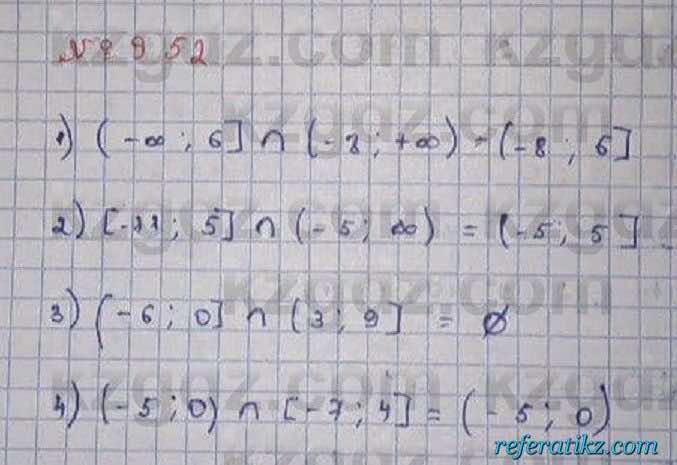 № 952
1) (-∞; 6] ∩ (-8; +∞) = (-8; 6]
2) [-11; 5] ∩ (-5; ∞) = (-5; 5]
3) (-6; 0] ∩ (3; 9] = ∅
4) (-5; 0) ∩ [-7; 4] = (-5; 0)
kzgdz.com
referatikz.com